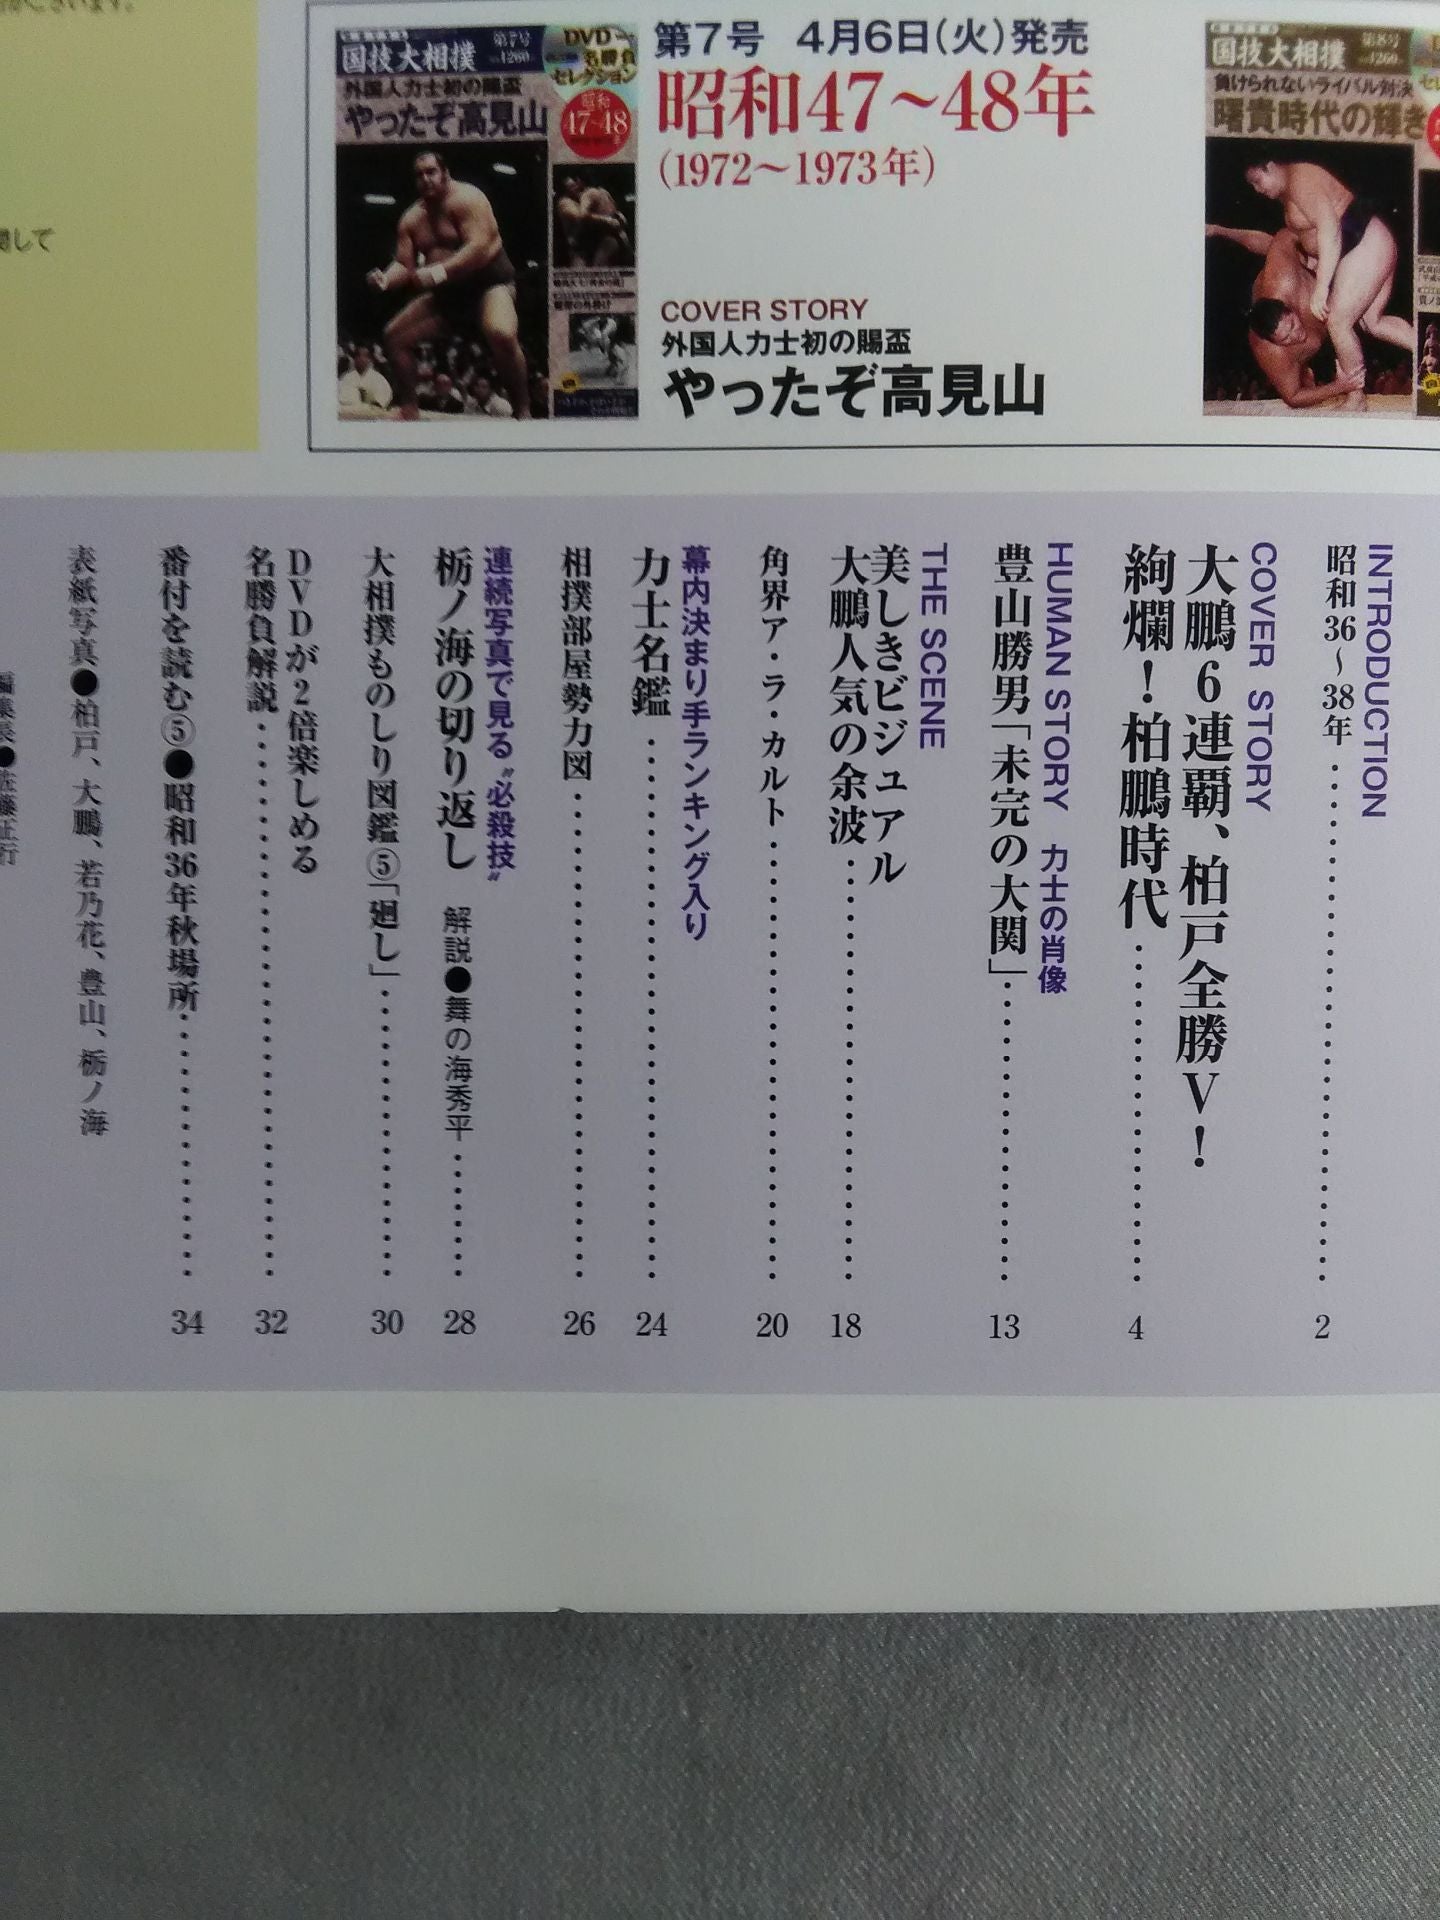 関して
国技大相撲
第7号
1260
外国人力士初の賜盃
やったぞ高見山
DVD
名勝負
セレクション
昭和
47〜48
第7号 4月6日(火)発売
昭和47〜48年
(1972〜1973年)
COVER STORY
外国人力士初の賜盃
やったぞ高見山
国技大相撲
第8号
1260
負けられないライバル対決
曙貴時代の輝き
INTRODUCTION
昭和36〜38年 2
COVER STORY
大鵬6連覇、柏戸全勝V!
絢爛!柏鵬時代 4
HUMAN STORY 力士の肖像
豊山勝男「未完の大関」 13
THE SCENE
美しきビジュアル
大鵬人気の余波 18
角界ア・ラ・カルト 20
幕内決まり手ランキング入り
力士名鑑 24
相撲部屋勢力図 26
連続写真で見る"必殺技"
栃ノ海の切り返し 解説●舞の海秀平 28
大相撲ものしり図鑑⑤「廻し」 30
DVDが2倍楽しめる
名勝負解説 32
番付を読む⑤●昭和36年秋場所 34
表紙写真●柏戸、大鵬、若乃花、豊山、栃ノ海